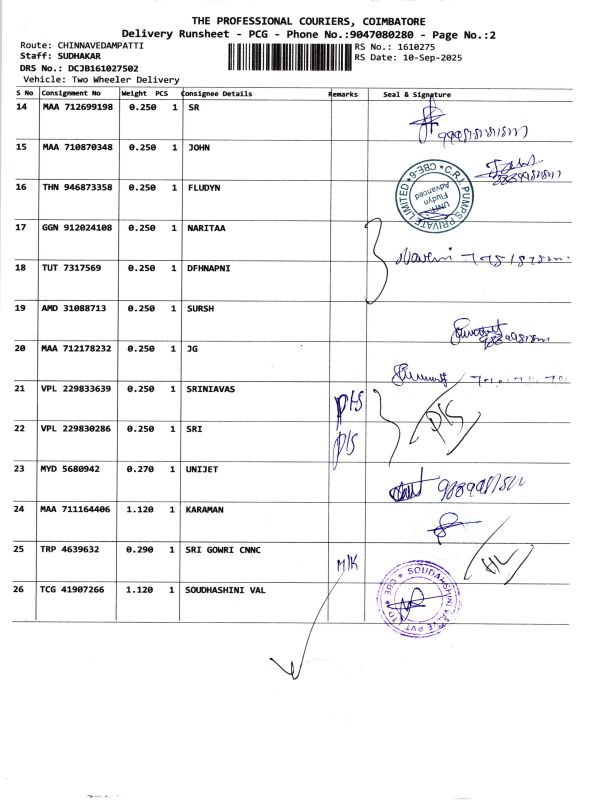 THE PROFESSIONAL COURIERS, COIMBATORE
Delivery Runsheet - PCG - Phone No.:9047080280 - Page No.:2
Route: CHINNAVEDAMPATTI
Staff: SUDHAKAR
DRS No.: DCJB161027502
Vehicle: Two Wheeler Delivery
RS No.: 1610275
RS Date: 10-Sep-2025
S No Consignment No Weight PCS Consignee Details Remarks Seal & Signature
14 MAA 712699198 0.250 1 SR
15 MAA 710870348 0.250 1 JOHN
16 THN 946873358 0.250 1 FLUDYN
C.R.I. PUMPS PRIVATE LIMITED * CBE-6 *
UNIT
Fludyn
Advanced
17 GGN 912024108 0.250 1 NARITAA
18 TUT 7317569 0.250 1 DFHNAPNI
19 AMD 31088713 0.250 1 SURSH
20 MAA 712178232 0.250 1 JG
21 VPL 229833639 0.250 1 SRINIAVAS
22 VPL 229830286 0.250 1 SRI
23 MYD 5680942 0.270 1 UNIJET
24 MAA 711164406 1.120 1 KARAMAN
25 TRP 4639632 0.290 1 SRI GOWRI CNNC
HL
26 TCG 41907266 1.120 1 SOUDHASHINI VAL